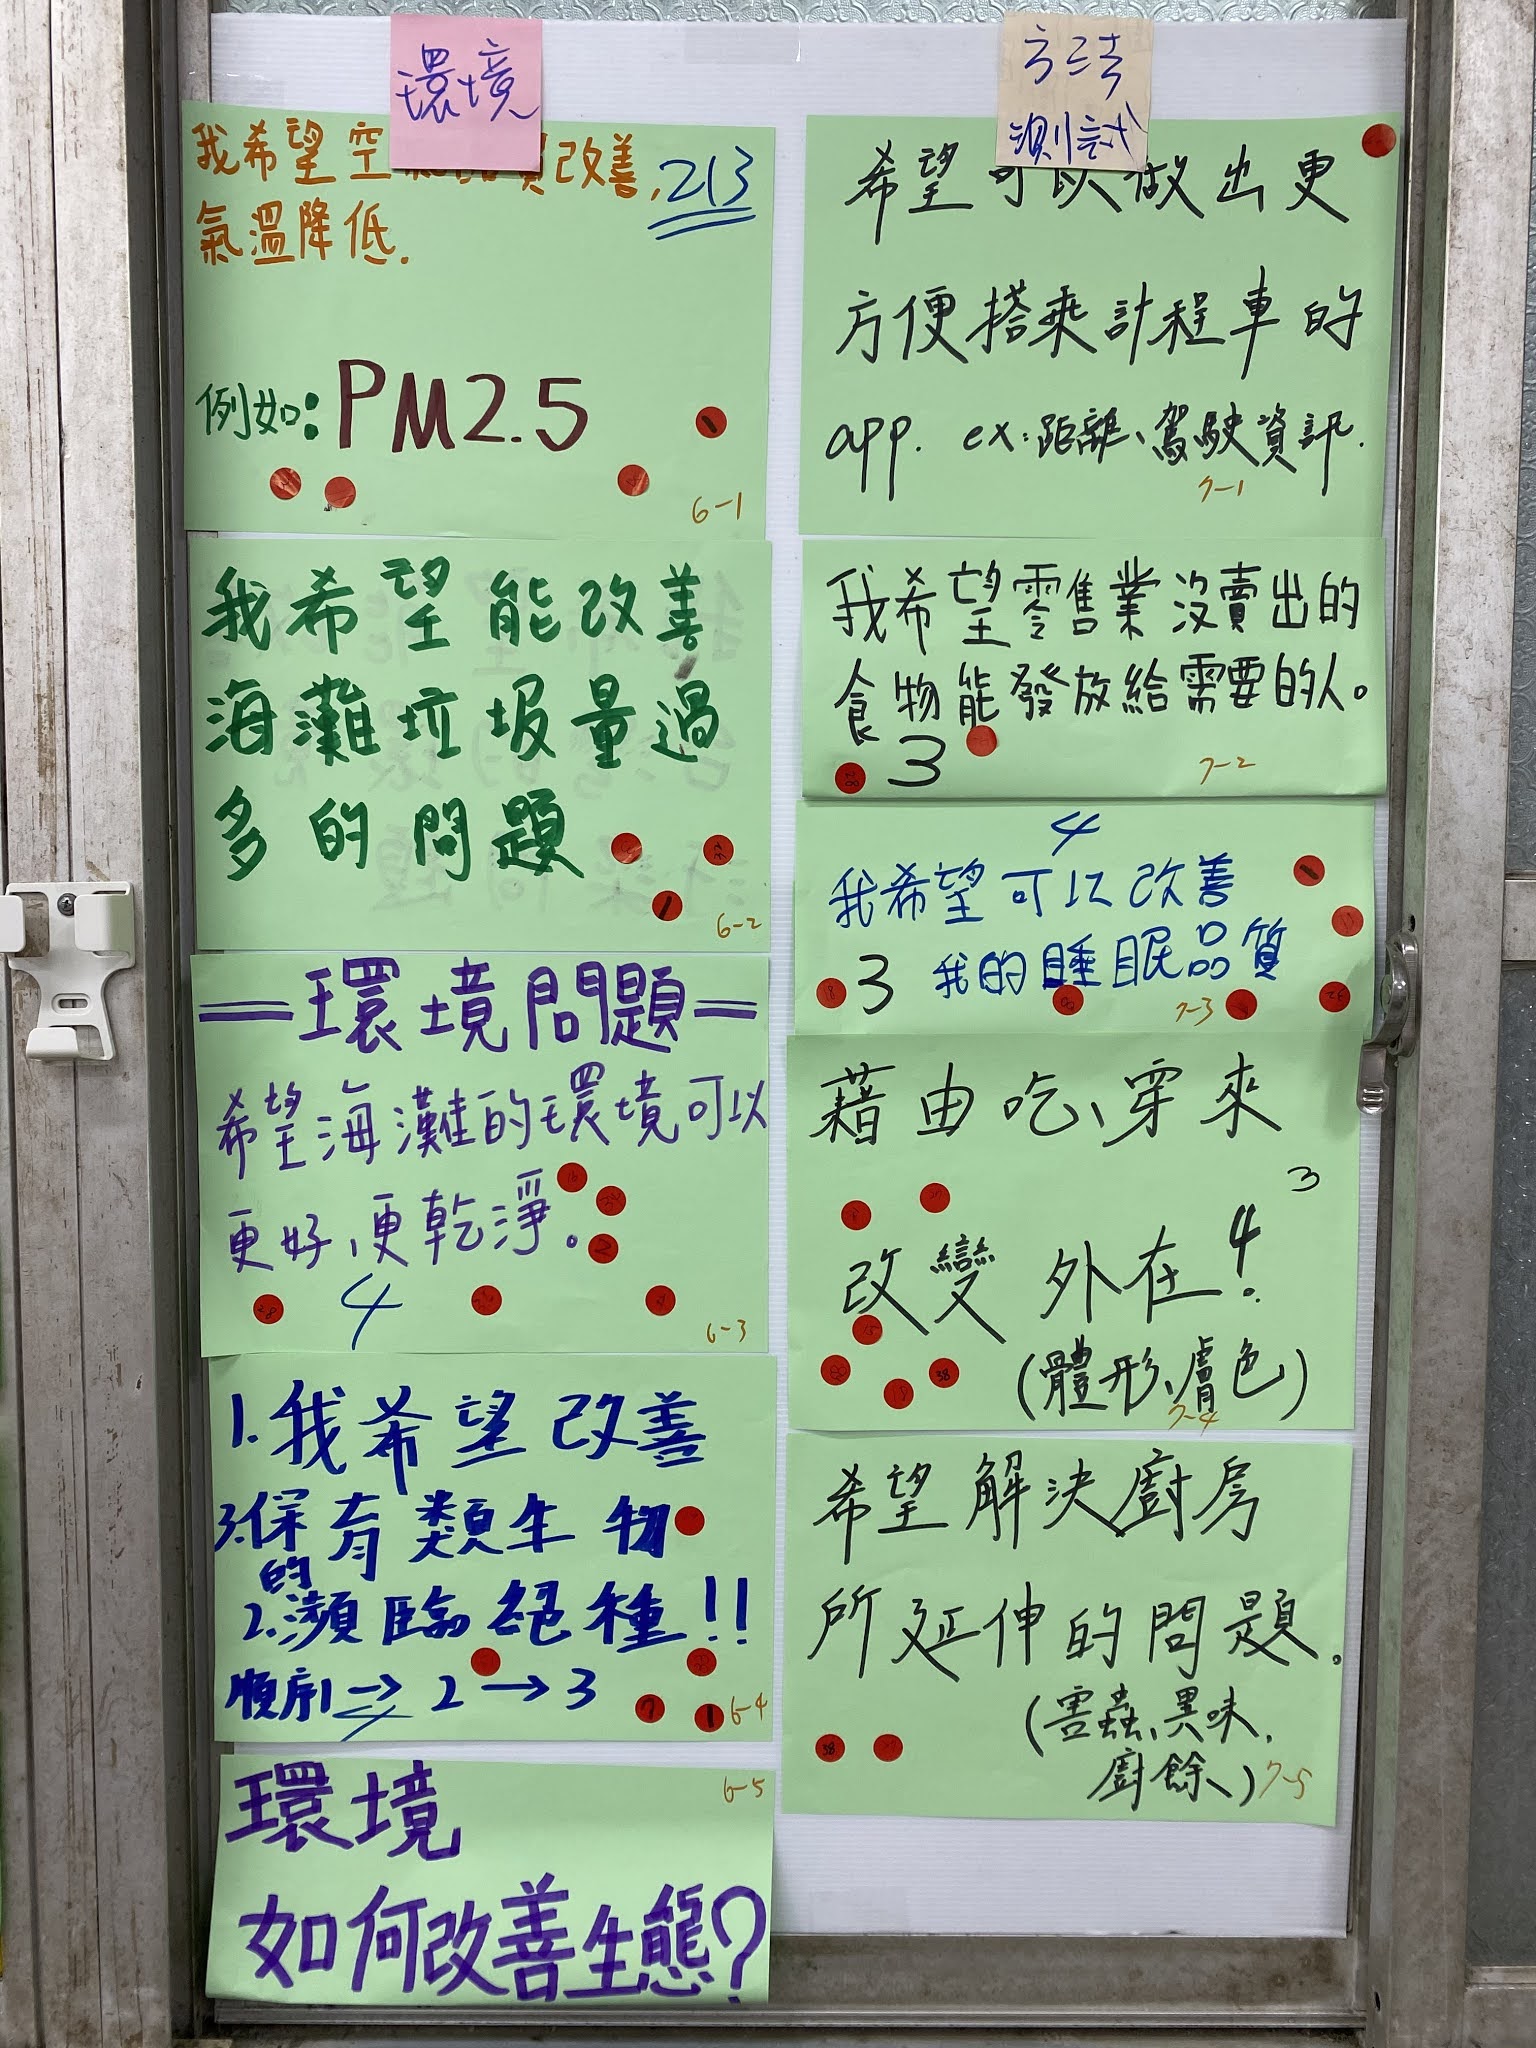 環境
我希望空改善,213
氣溫降低.
例如:PM2.5
6-1
我希望能改善
海灘垃圾量過
多的問題
6-2
=環境問題=
希望海灘的環境可以
更好、更乾淨。
4
6-3
1.我希望改善
3.保育類生物
的
2.瀕臨絕種!!
順序1→2→3
4
6-4
6-5
環境
如何改善生態?
方法
測試
希望可以做出更
方便搭乘計程車的
app. ex:距離、駕駛資訊.
7-1
我希望零售業沒賣出的
食物能發放給需要的人。
3
7-2
4
我希望可以改善
3 我的睡眠品質
7-3
藉由吃、穿來
3
改變外在!
4
(體形、膚色)
7-4
希望解決廚房
所延伸的問題.
(害蟲、異味、
廚餘、)
7-5